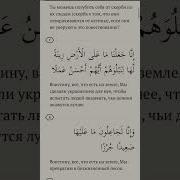 Ты можешь погубить себя от скорби по
их следам (скорбя о том, что они
отворачиваются от истины), если они
не уверуют в это повествование?
إِنَّا جَعَلْنَا مَا عَلَى الْأَرْضِ زِينَةً
لَّهَا لِنَبْلُوَهُمْ أَيُّهُمْ أَحْسَنُ عَمَلًا
Воистину, все, что есть на земле, Мы
сделали украшением для нее, чтобы
испытать людей и выявить, чьи деяния
окажутся лучше.
وَإِنَّا لَجَاعِلُونَ مَا عَلَيْهَا
صَعِيدًا جُرُزًا
Воистину, все, что есть на земле, Мы
превратим в безжизненный песок.